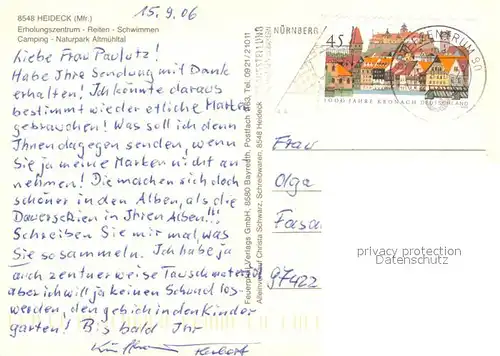 15.9.06
8548 HEIDECK (Mfr.)
Erholungszentrum - Reiten - Schwimmen
Camping - Naturpark Altmühltal
Liebe Frau
Habe Ihre Sendung mit Dank
erhalten! Ich konnte daraus
bestimmt wieder etliche Marken
gebrauchen! Was soll ich denn
Ihnen dagegen senden, wenn
Sie ja meine Marken nicht an
nehmen! Die machen sich doch
schöner in den Alben, als die
Dauerserien in Ihren Alben!!!
Schreiben Sie mir mal, was
Sie so sammeln. Ich habe ja
auch zentnerweise Tauschmaterial
aber ich will ja keinen Schund los
werden, den geb ich in den Kinder
garten! Bis bald Ihr
Herbert
Verlags GmbH, 8580 Bayreuth, Postfach 463, Tel. 0921/21011
Alleinverkauf Christa Schwarz, Schreibwaren, 8548 Heideck
NÜRNBERG
45
1000 JAHRE KRONACH DEUTSCHLAND
BRIEFZENTRUM 90
Frau
Olga
Fasa
97422
privacy protection
Datenschutz